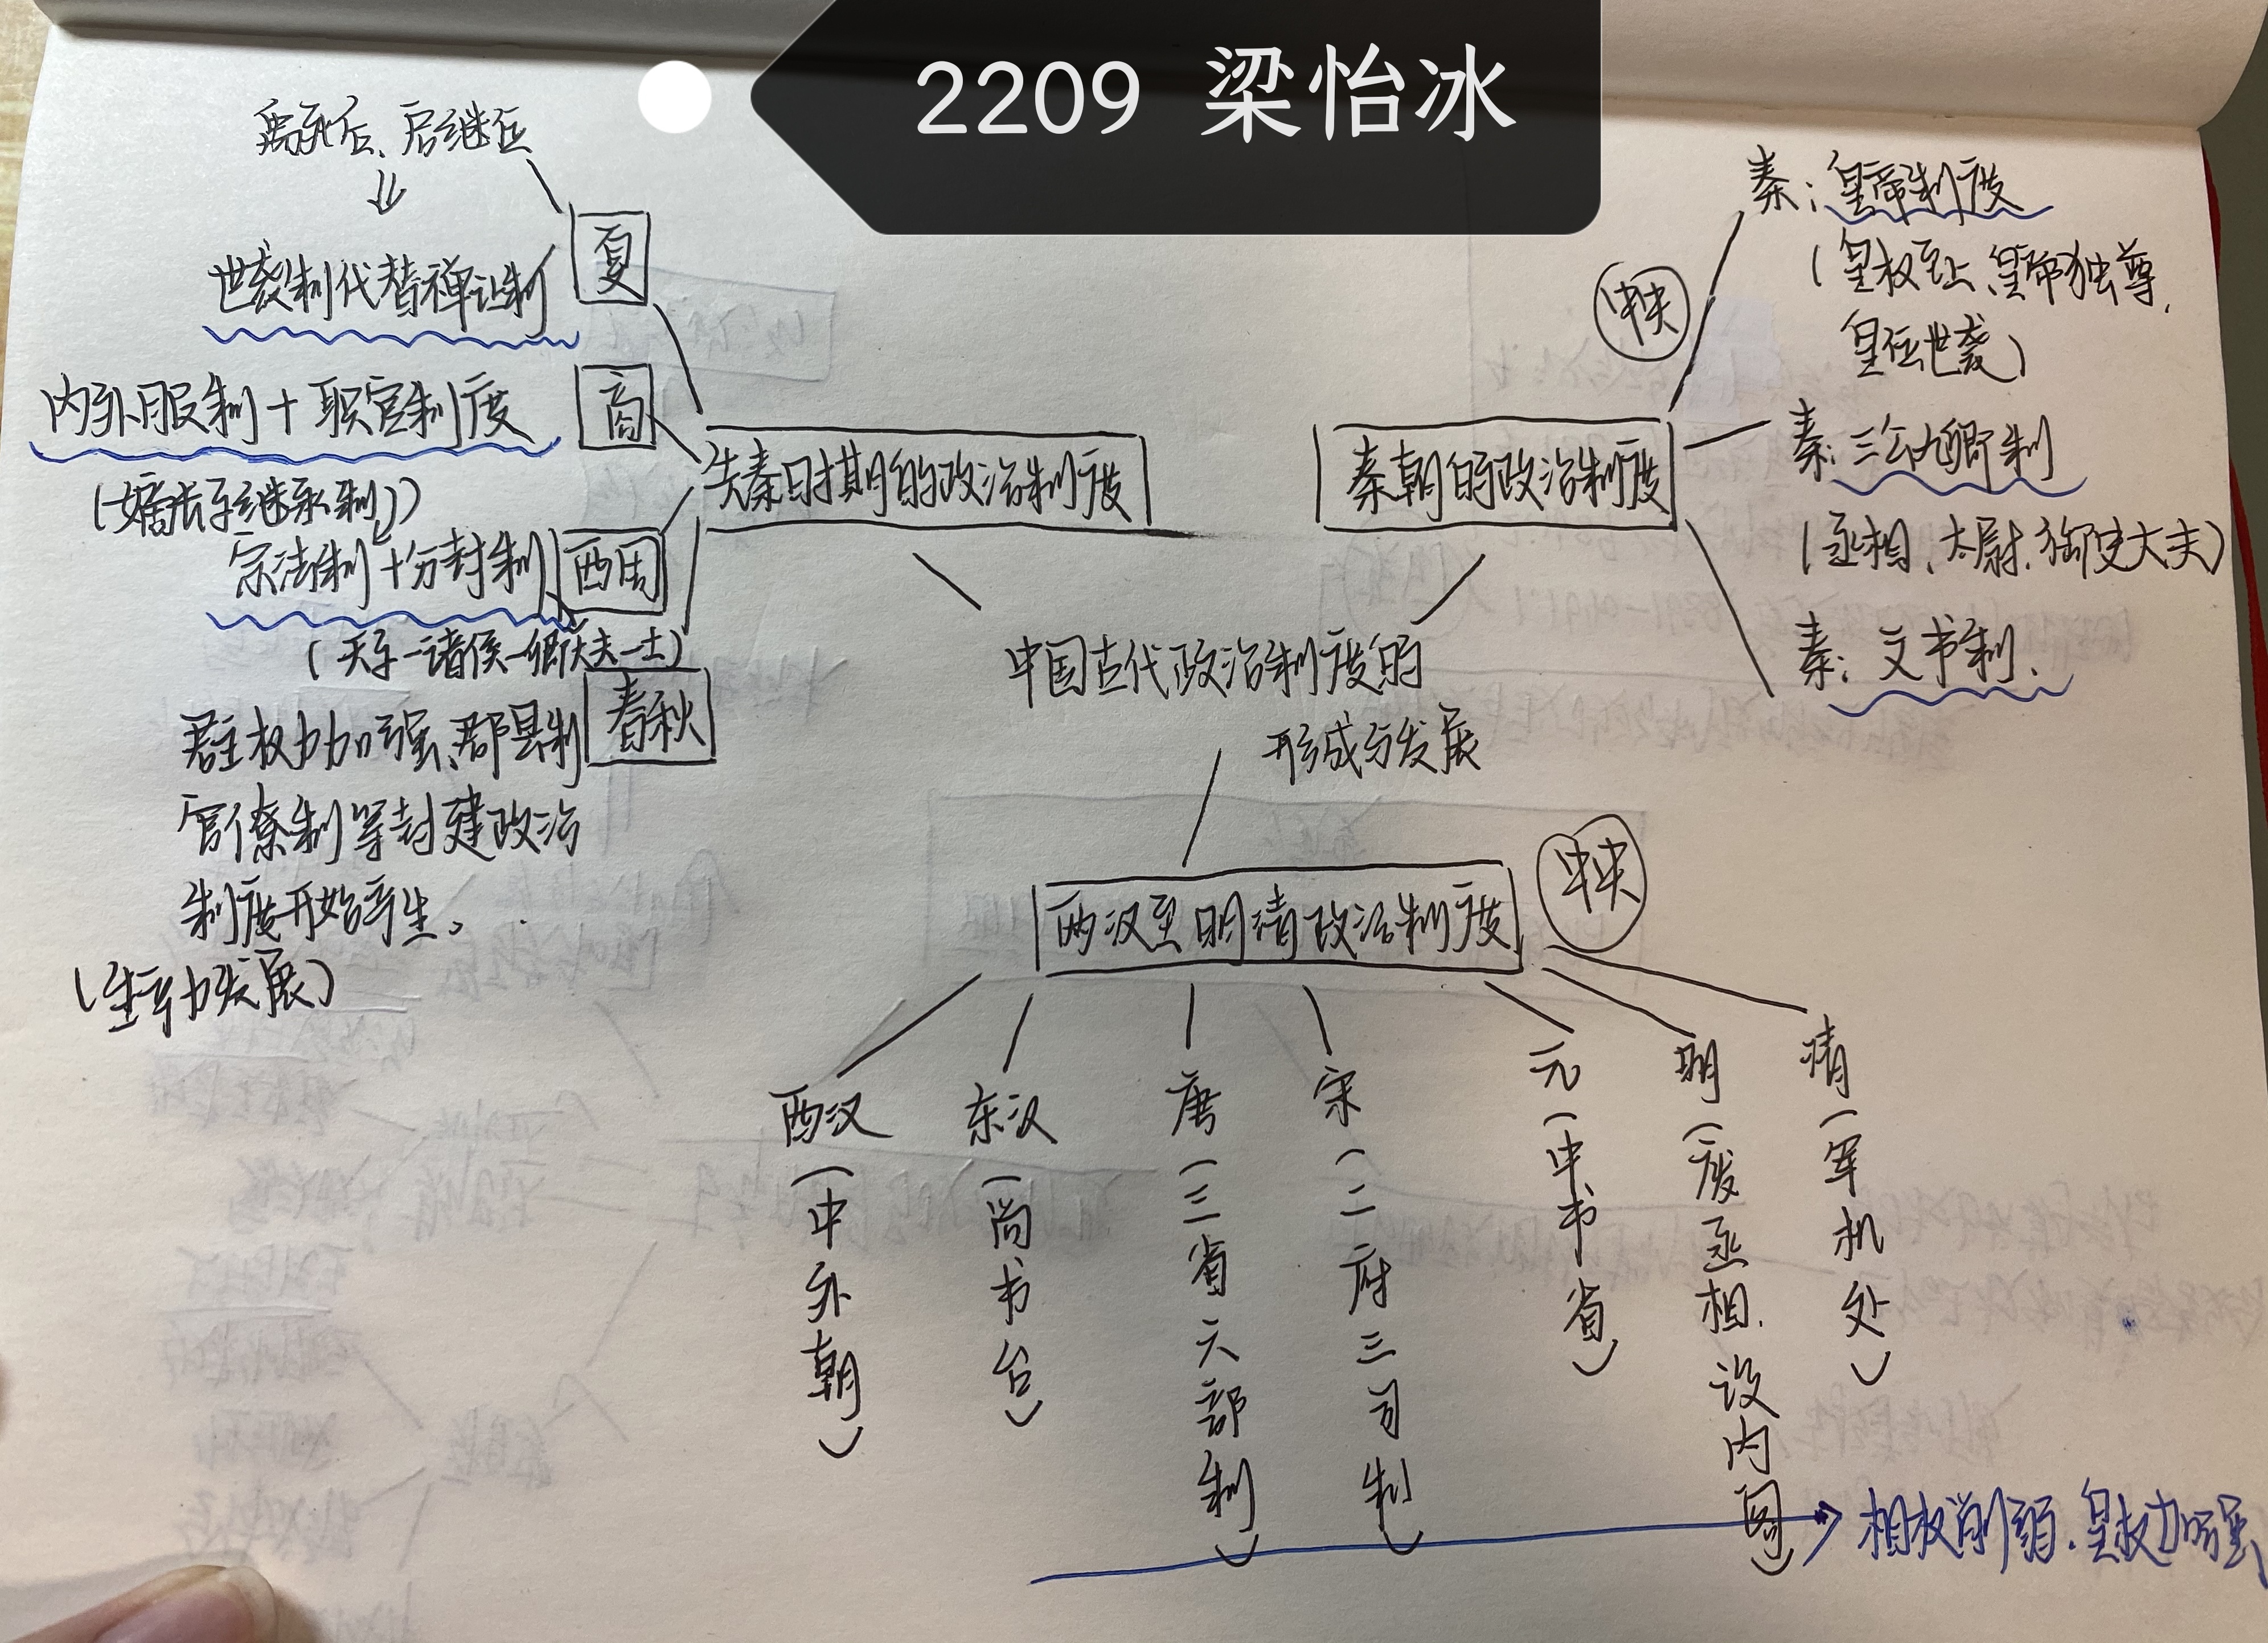 2209 梁怡冰
禹死后、启继位
夏
世袭制代替禅让制
商
内外服制+职官制度
(嫡长子继承制)
西周
宗法制+分封制
(天子-诸侯-卿大夫-士)
春秋
君主权力加强、郡县制
官僚制等封建政治
制度开始产生。
(生产力发展)
先秦时期的政治制度
秦朝的政治制度
中央
秦:皇帝制度
(皇权至上、皇帝独尊、
皇位世袭)
秦:三公九卿制
(丞相、太尉、御史大夫)
秦:文书制、
中国古代政治制度的
形成与发展
两汉至明清政治制度
中央
西汉(中外朝)
东汉(尚书台)
唐(三省六部制)
宋(二府三司制)
元(中书省)
明(废丞相、设内阁)
清(军机处)
相权削弱、皇权加强